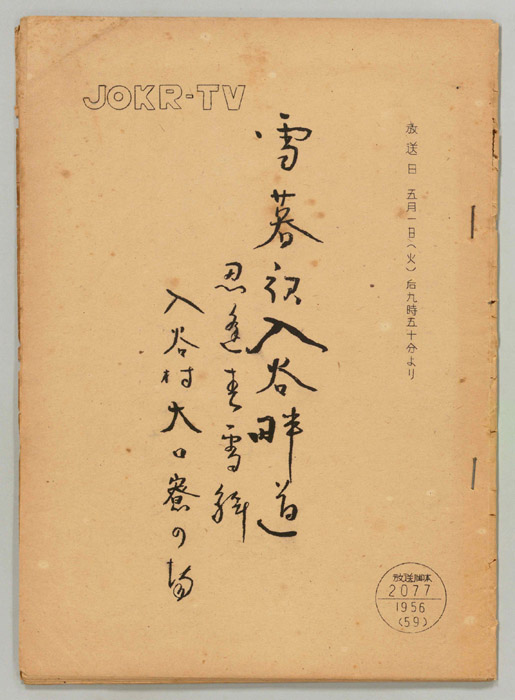 JOKR-TV
放送日 五月一日(火)后九時五十分より
雪暮夜入谷畔道
忍逢春雪解
入谷村大口寮の場
放送脚本
2077
1956
(59)